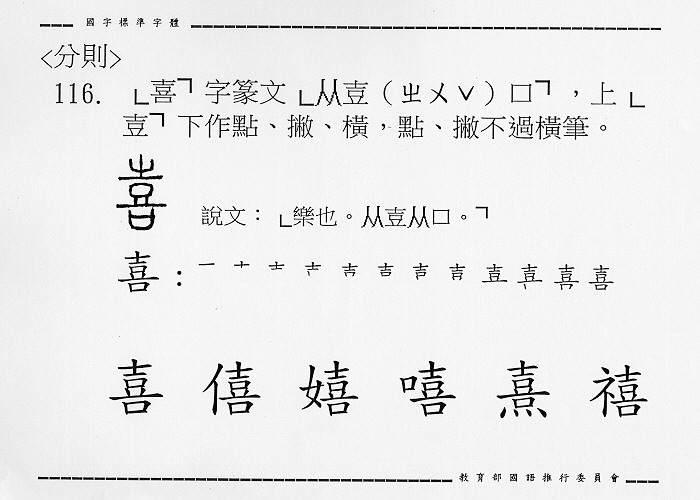 國字標準字體
<分則>
116. ﹂喜﹁字篆文﹂从壴（ㄓㄨˇ）口﹁，上﹂
壴﹁下作點、撇、橫，點、撇不過橫筆。
喜 說文：﹂樂也。从壴从口。﹁
喜：
喜 僖 嬉 嘻 熹 禧
教育部國語推行委員會